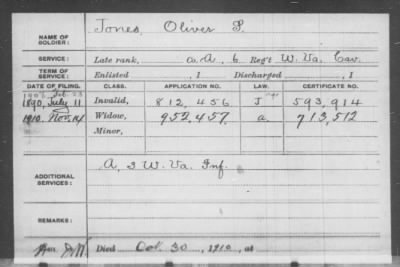 NAME OF SOLDIER: Jones, Oliver P.
SERVICE: Late rank, Co. A, 6 Reg't W. Va. Cav.
TERM OF SERVICE: Enlisted , 1 Discharged , 1
DATE OF FILING. CLASS. APPLICATION NO. LAW. CERTIFICATE NO.
1890, July 11 Invalid, 812,456 J 593,914
1910, Nov. 14 Widow, 952,457 a. 713,512
Minor,
ADDITIONAL SERVICES: A, 3 W. Va. Inf.
REMARKS:
Died Oct. 30, 1910, at